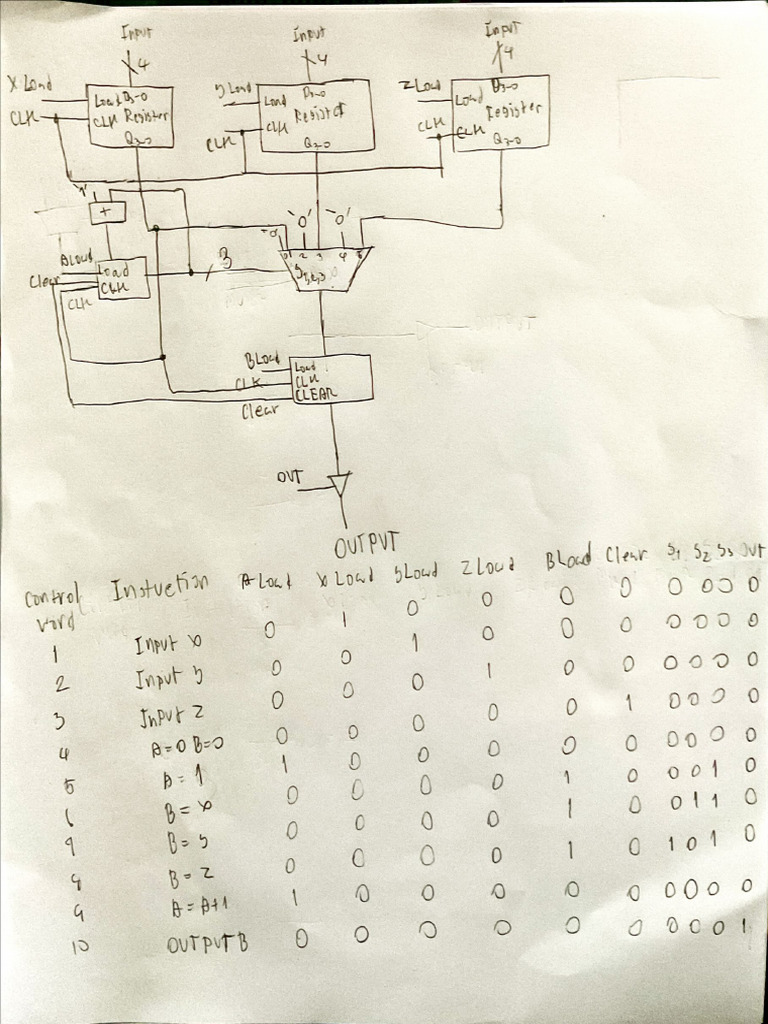 Input Input Input
4 4 4
X Load Y Load Z Load
Load D3-0 D3-0 D3-0
CLK CLK Register Load Register Load Register
CLK CLK CLK CLK
Q3-0 Q3-0 Q3-0
'1' '0' '0'
+ '0'
ALoad 1 2 3 4 5
Clear Load 3
CLK CLK S1,2,3
BLoad Load
CLK CLK
Clear CLEAR
OUT
OUTPUT
Control word Instruction A Load X Load Y Load Z Load B Load Clear S1 S2 S3 OUT
1 Input X 0 1 0 0 0 0 0 0 0 0
2 Input Y 0 0 1 0 0 0 0 0 0 0
3 Input Z 0 0 0 1 0 0 0 0 0 0
4 A=0 B=0 0 0 0 0 0 1 0 0 0 0
5 A=1 1 0 0 0 0 0 0 0 0 0
6 B=X 0 0 0 0 1 0 0 0 1 0
7 B=Y 0 0 0 0 1 0 0 1 1 0
8 B=Z 0 0 0 0 1 0 1 0 1 0
9 A=A+1 1 0 0 0 0 0 0 0 0 0
10 OUTPUT B 0 0 0 0 0 0 0 0 0 1